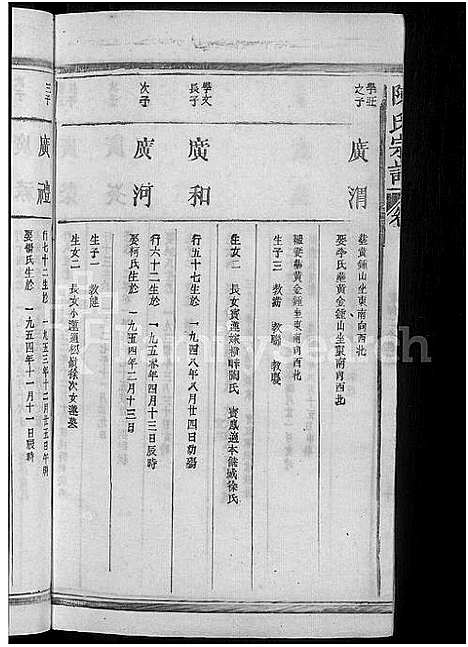 陳氏宗譜
學莊之子
廣渭
葬黃鍾山坐東南向西北
娶李氏葬黃金鍾山坐東南向西北
繼妻葬黃金鍾坐東南向西北
生子三 教
生女二 長女寶蓮嫁柳畔陶氏 寶鳳適本
城徐氏
學文長子
廣和
行五十七生於一九四八年八月廿四日
次子
廣河
行六十二生於一九五〇年四月十三日辰時
娶柯氏生於一九五四年二月十三日
生子一 教
生女二 長女小
次女
三子
廣禮
行七十二生於一九五三年十二月廿五日午時
娶 氏生於一九五四年十一月十一日辰時